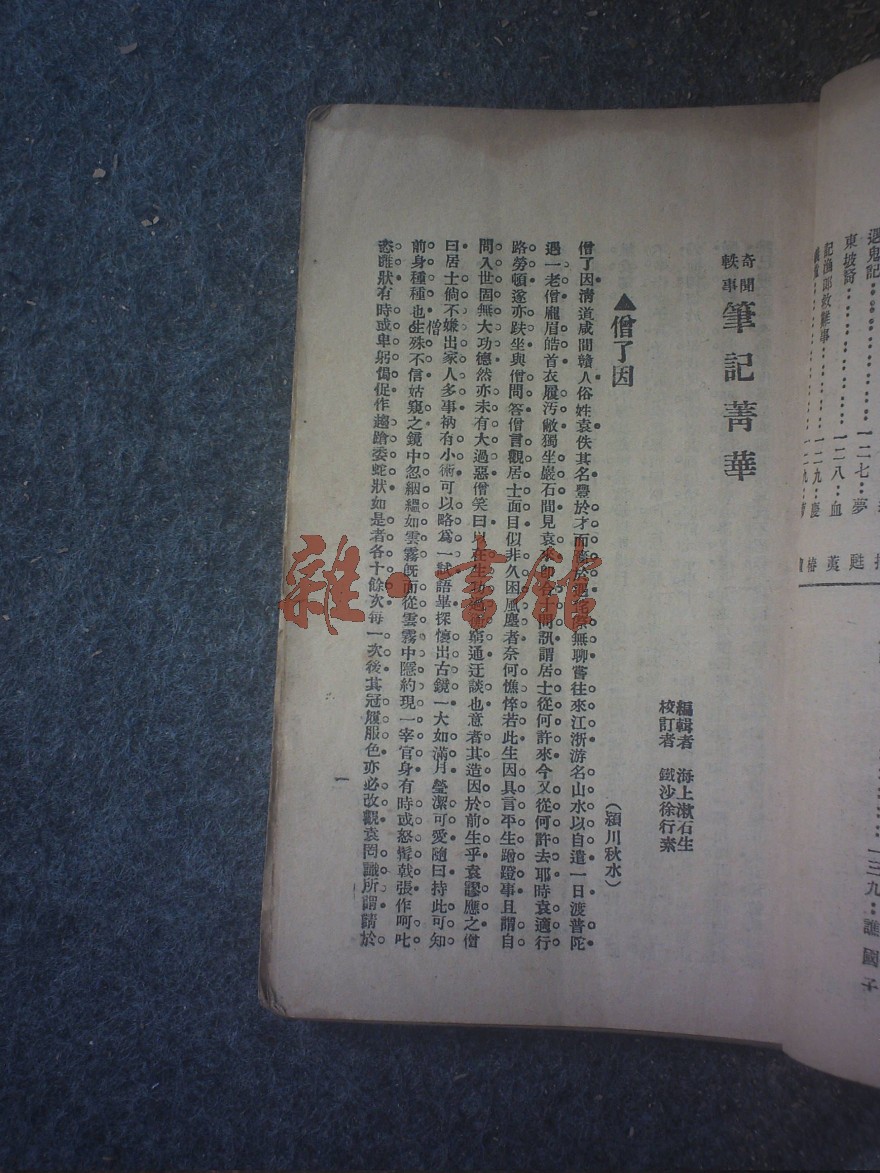 奇聞
軼事
筆記菁華
編輯者　海上漱石生
校訂者　鐵沙徐行素
▲僧了因
（潁川秋水）
僧了因清道咸間贛人俗姓袁佚其名豐於才而嗇於遇侘傺無聊嘗往來江浙游名山水以自遣一日渡普陀
遇一老僧龐眉皓首衣履汚敝獨坐巖石間見袁來卽合十問訊謂居士從何許來今又從何許去耶時袁適行
路勞頓遂亦趺坐與僧問答僧言觀居士面目似非久困風塵者奈何憔悴若此生因具言平生蹭蹬事且謂自
問入世固無大功德然亦未有大過惡僧笑曰以在生功過衡窮通迂談也意者其造因於前生乎袁謬應之僧
曰居士倘不嫌出家人多事衲有小術可以略爲一試語畢探懷出古鏡一大如滿月瑩潔可愛隨曰持此可知
前身種種也生殊不信姑窺之鏡中忽絪縕如雲霧旣而從雲霧中隱約現一宰官身有時或怒髯戟張作呵叱
僧
恣睢狀有時或卑躬傴促作趨蹌委蛇狀如是者各十餘次每一次後其冠履服色亦必改觀袁罔識所謂請於
一
遇鬼記⋯⋯一二七⋯夢
東坡硏⋯⋯一二八⋯血
記漁郎救難事⋯⋯一二九⋯慶
甦
薰
椿
一三九⋯譙國子
雜·書館